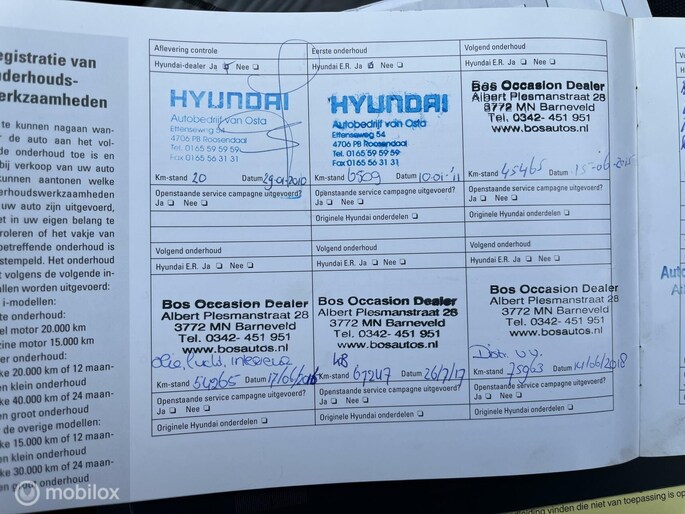 egistratie van
nderhouds-
erkzaamheden
te kunnen nagaan wan-
de auto aan het vol-
de onderhoud toe is en
bij verkoop van uw auto
kunnen aantonen welke
erhoudswerkzaamheden
uw auto zijn uitgevoerd,
et in uw eigen belang te
troleren of het vakje van
betreffende onderhoud is
stempeld. Het onderhoud
t volgens de volgende in-
allen worden uitgevoerd:
i-modellen:
te onderhoud:
el motor 20.000 km
zine motor 15.000 km
er onderhoud:
ke 20.000 km of 12 maan-
en klein onderhoud
ke 40.000 km of 24 maan-
en groot onderhoud
de overige modellen:
ke 15.000 km of 12 maan-
en klein onderhoud
ke 30.000 km of 24 maan-
en groot onderhoud
Aflevering controle
Hyundai-dealer Ja Nee
HYUNDAI
Autobedrijf van Osta
Ettenseweg 54
4706 PB Roosendaal
Tel. 0165 59 59 59
Fax 0165 56 31 31
Km-stand 20 Datum 29-01-2010
Openstaande service campagne uitgevoerd?
Ja Nee
Eerste onderhoud
Hyundai E.R. Ja Nee
HYUNDAI
Autobedrijf van Osta
Ettenseweg 54
4706 PB Roosendaal
Tel. 0165 59 59 59
Fax 0165 56 31 31
Km-stand 6509 Datum 10-01-'11
Openstaande service campagne uitgevoerd?
Ja Nee
Originele Hyundai onderdelen
Volgend onderhoud
Hyundai E.R. Ja Nee
Bos Occasion Dealer
Albert Plesmanstraat 28
3772 MN Barneveld
Tel. 0342- 451 951
www.bosautos.nl
Km-stand 45465 Datum 15-06-2015
Openstaande service campagne uitgevoerd?
Ja Nee
Originele Hyundai onderdelen
Volgend onderhoud
Hyundai E.R. Ja Nee
Bos Occasion Dealer
Albert Plesmanstraat 28
3772 MN Barneveld
Tel. 0342- 451 951
www.bosautos.nl
Olie, lucht, interieur
Km-stand 54265 Datum 17/06/2016
Openstaande service campagne uitgevoerd?
Ja Nee
Originele Hyundai onderdelen
Volgend onderhoud
Hyundai E.R. Ja Nee
Bos Occasion Dealer
Albert Plesmanstraat 28
3772 MN Barneveld
Tel. 0342- 451 951
www.bosautos.nl
KB
Km-stand 67247 Datum 26/7/17
Openstaande service campagne uitgevoerd?
Ja Nee
Originele Hyundai onderdelen
Volgend onderhoud
Hyundai E.R. Ja Nee
Bos Occasion Dealer
Albert Plesmanstraat 28
3772 MN Barneveld
Tel. 0342- 451 951
www.bosautos.nl
Km-stand 75963 Datum 14/06/2018
Openstaande service campagne uitgevoerd?
Ja Nee
Originele Hyundai onderdelen
Auto
mobilox
vinden die niet van toepassing is op